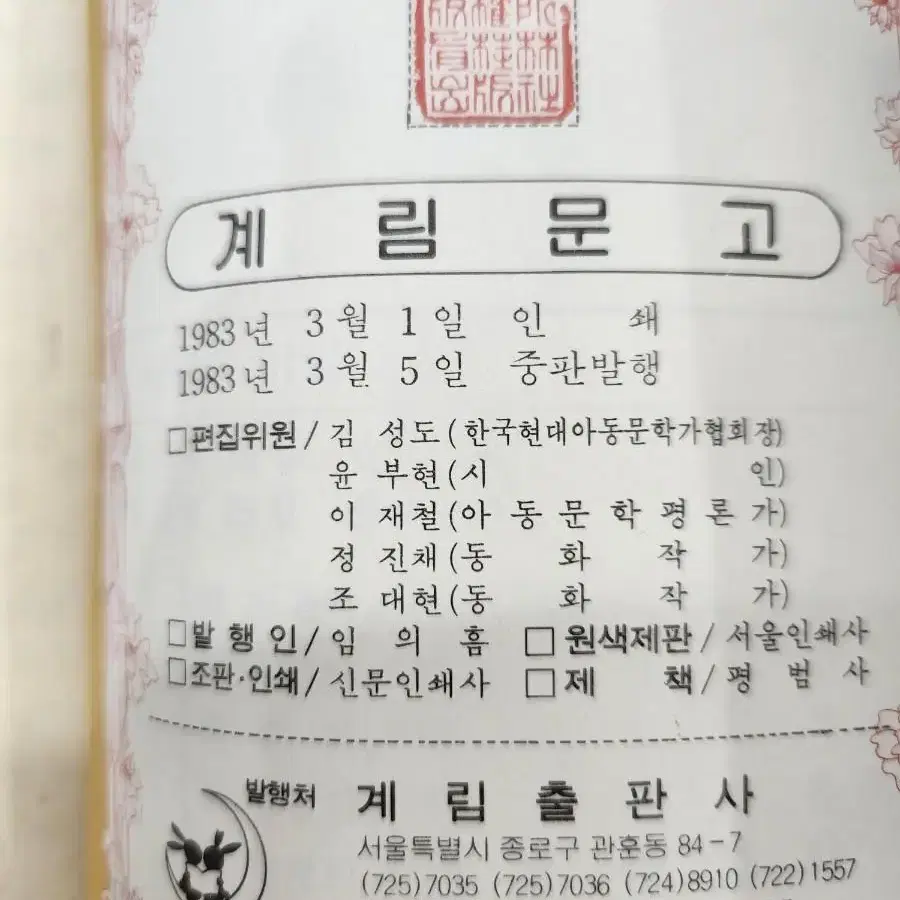 계림문고
1983년 3월 1일 인 쇄
1983년 3월 5일 중판발행
□편집위원/김 성도(한국현대아동문학가협회장)
윤 부현(시 인)
이 재철(아 동 문 학 평 론 가)
정 진채(동 화 작 가)
조 대현(동 화 작 가)
□발 행 인/임 의 흠 □원색제판/서울인쇄사
□조판·인쇄/신문인쇄사 □제 책/평 범 사
발행처 계 림 출 판 사
서울특별시 종로구 관훈동 84-7
(725)7035 (725)7036 (724)8910 (722)1557